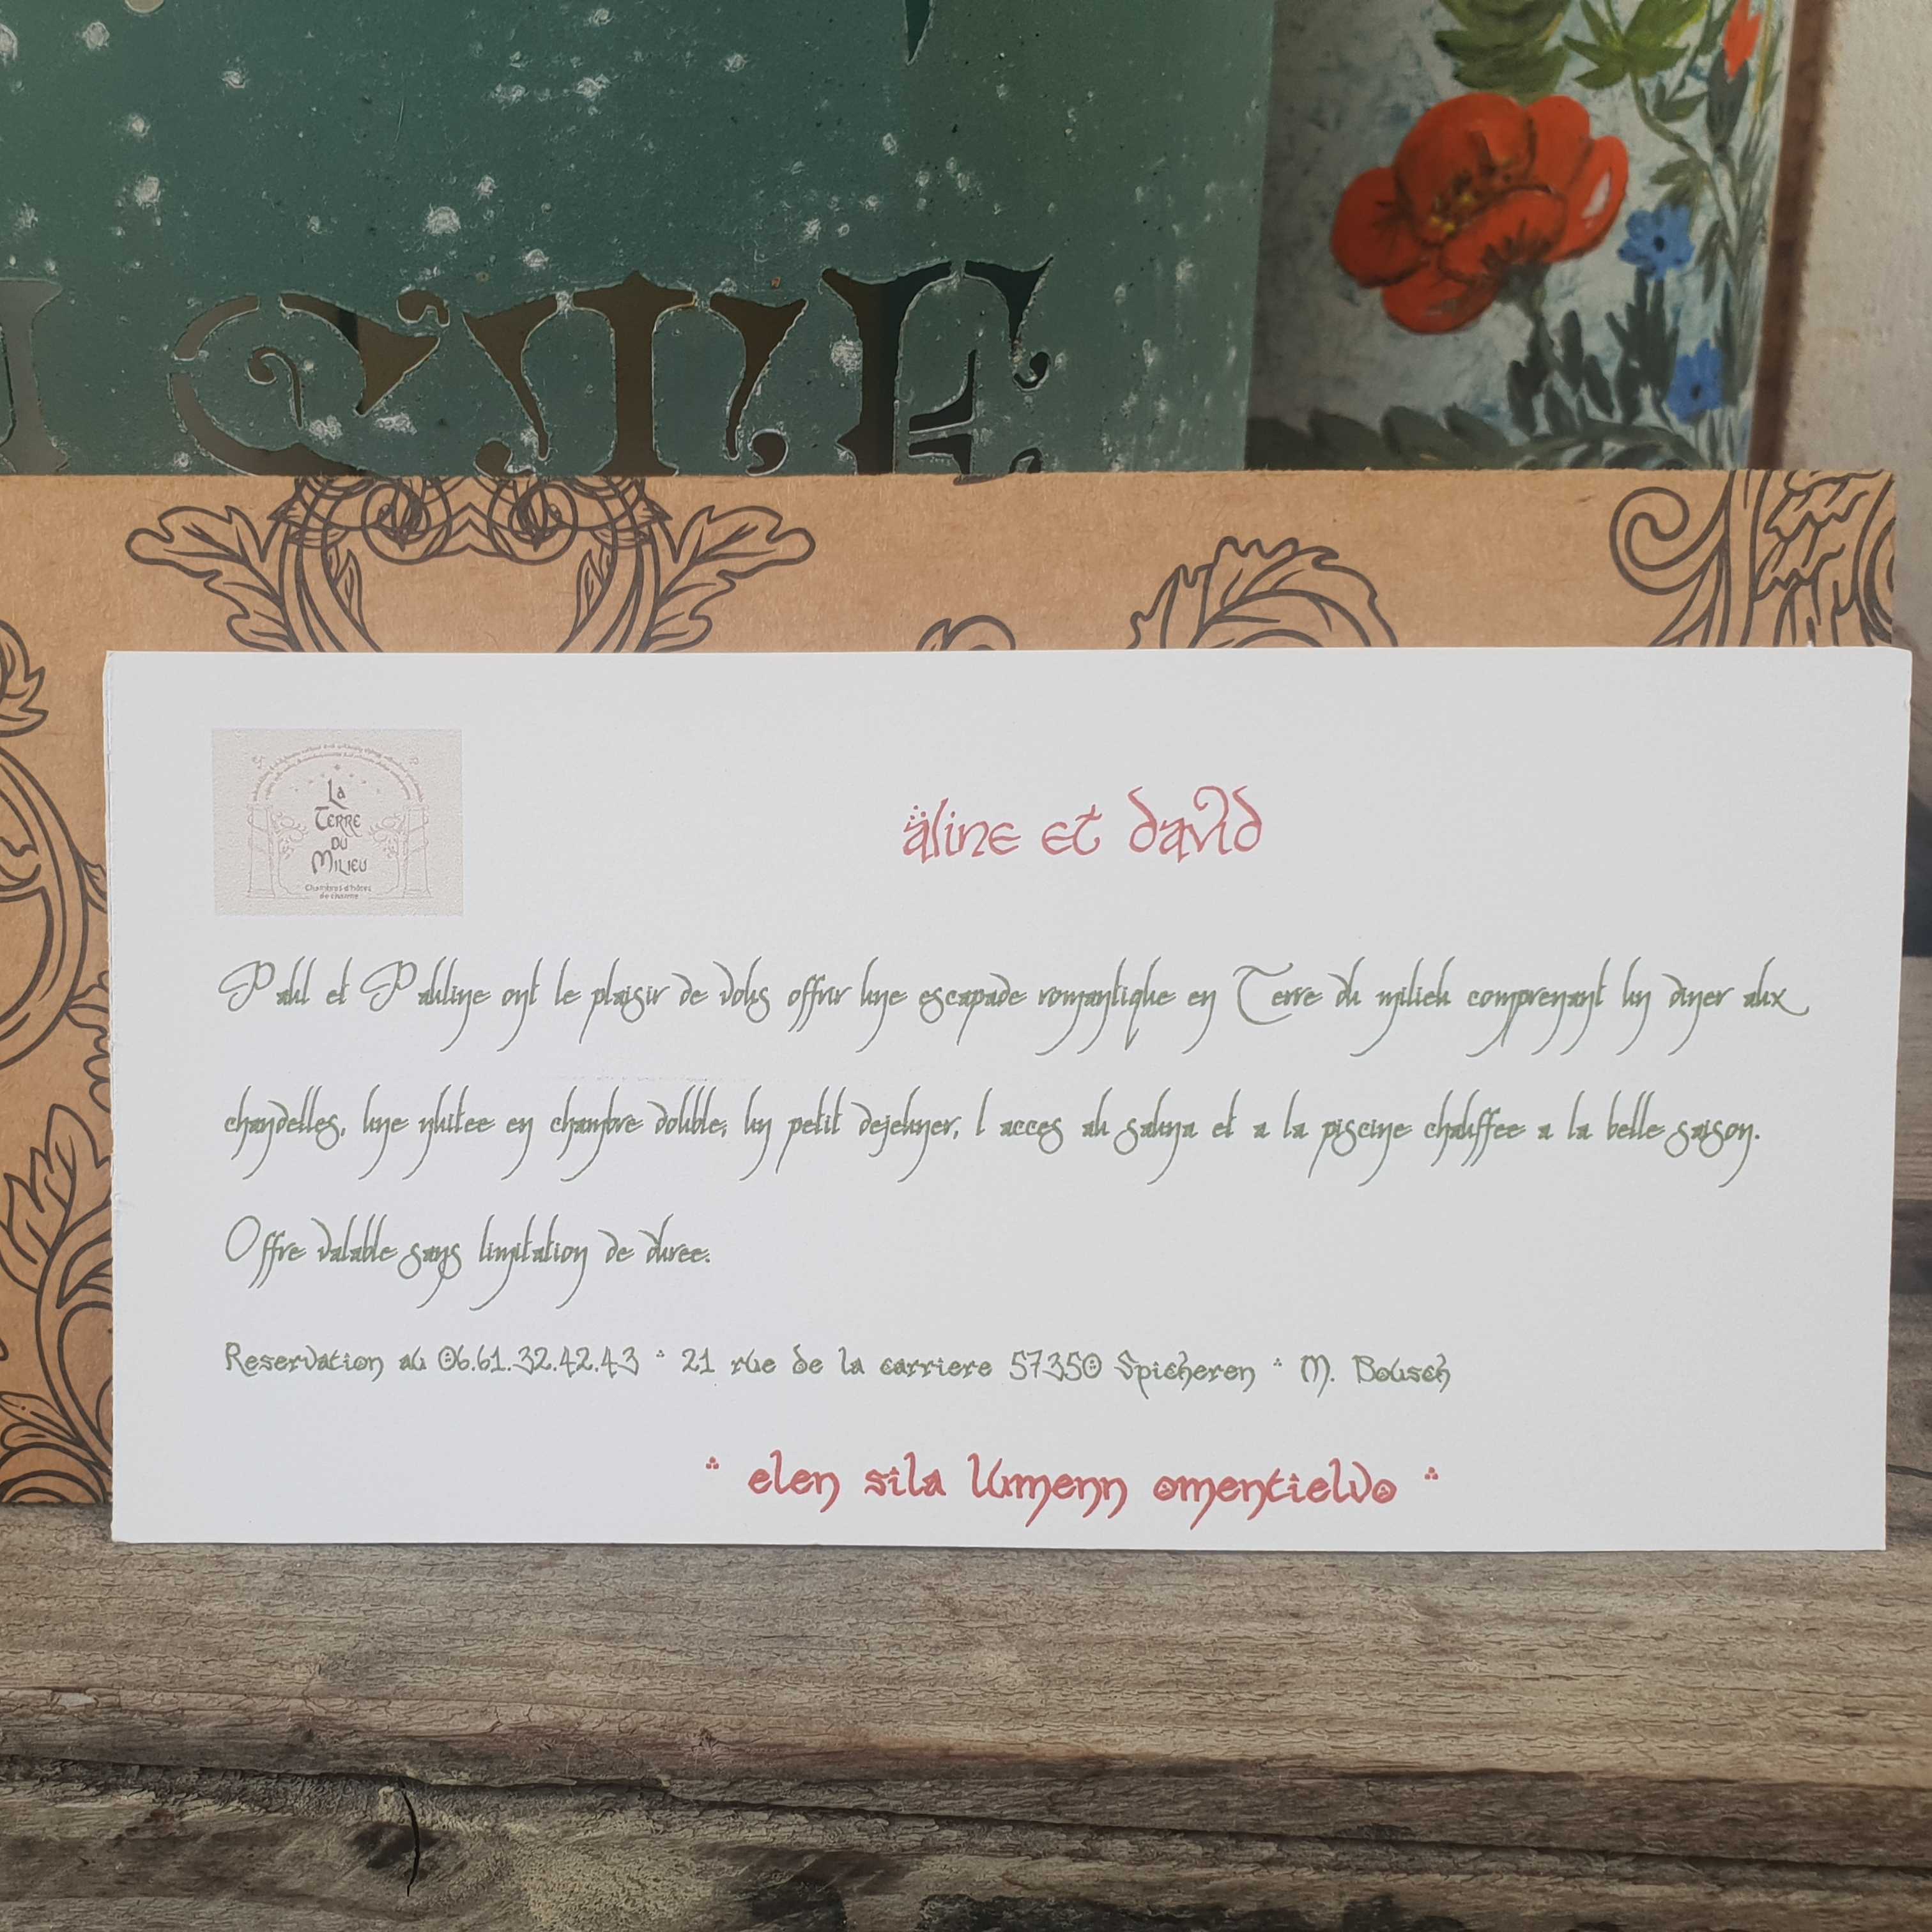 La
Terre
du
Milieu
Chambres d'hôtes
de charme
äline et david
Paul et Pauline ont le plaisir de vous offrir une escapade romantique en Terre du milieu comprenant un diner aux
chandelles, une nuitee en chambre double, un petit dejeuner, l acces au sauna et a la piscine chauffee a la belle saison.
Offre valable sans limitation de duree.
Reservation au 06.61.32.42.43 * 21 rue de la carriere 57350 Spicheren * M. Bousch
* elen sila lumenn omentielvo *